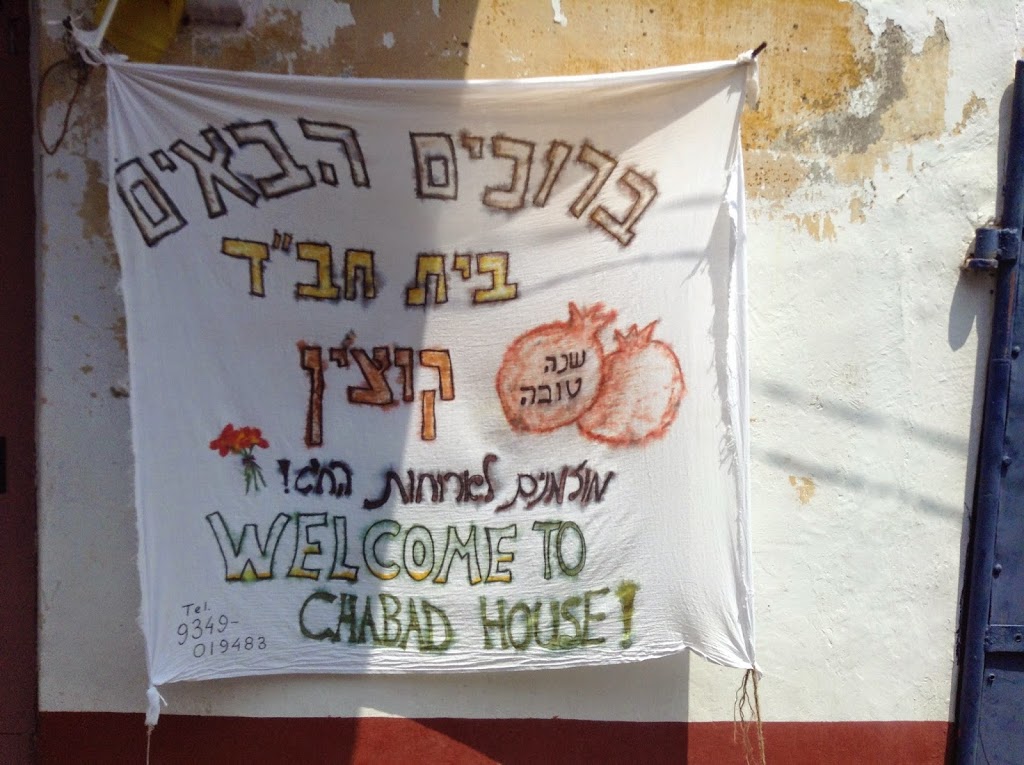 ברוכים הבאים
בית חב"ד
קוצ'ין
שנה
טובה
מוזמנים לארוחות החג!
WELCOME TO
CHABAD HOUSE!
Tel.
9349-
019483